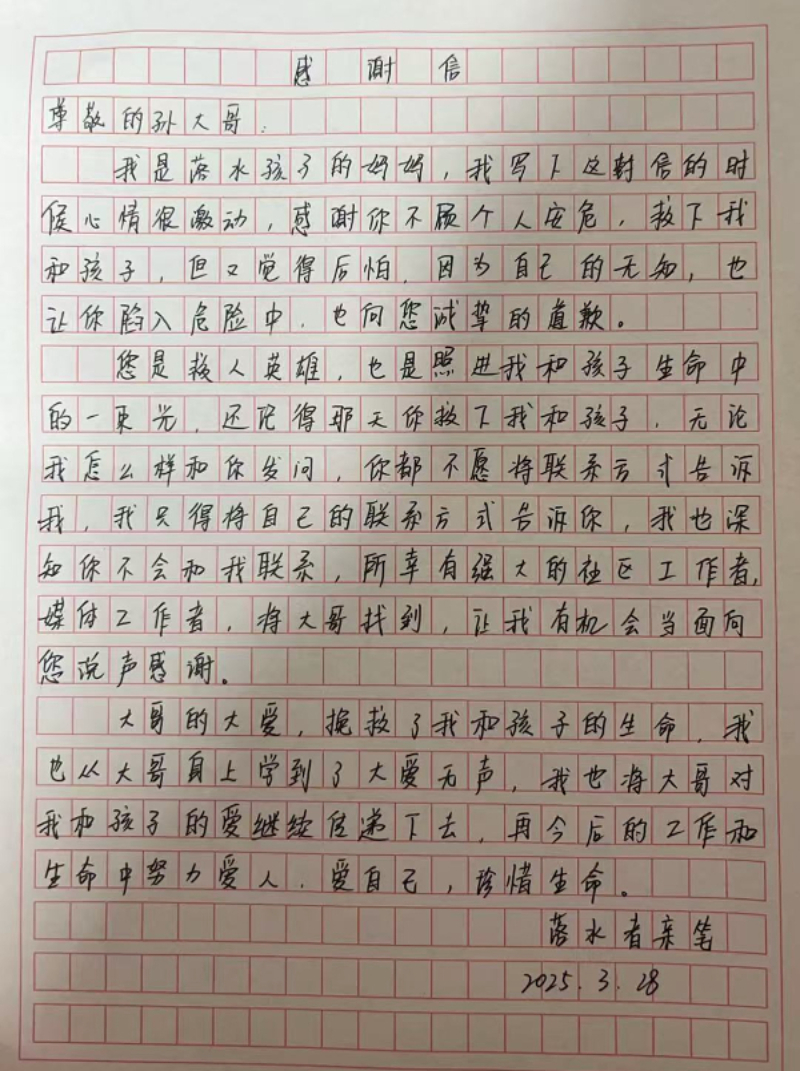 感谢信
尊敬的孙大哥：
我是落水孩子的妈妈，我写下这封信的时
候心情很激动，感谢你不顾个人安危，救下我
和孩子，但又觉得后怕，因为自己的无知，也
让你陷入危险中，也向您诚挚的道歉。
您是救人英雄，也是照进我和孩子生命中
的一束光，还记得那天你救下我和孩子，无论
我怎么样和你发问，你都不愿将联系方式告诉
我，我只得将自己的联系方式告诉你，我也深
知你不会和我联系，所幸有强大的社区工作者，
媒体工作者，将大哥找到，让我有机会当面向
您说声感谢。
大哥的大爱，挽救了我和孩子的生命，我
也从大哥身上学到了大爱无声，我也将大哥对
我和孩子的爱继续传递下去，再今后的工作和
生命中努力爱人，爱自己，珍惜生命。
落水者亲笔
2025.3.28